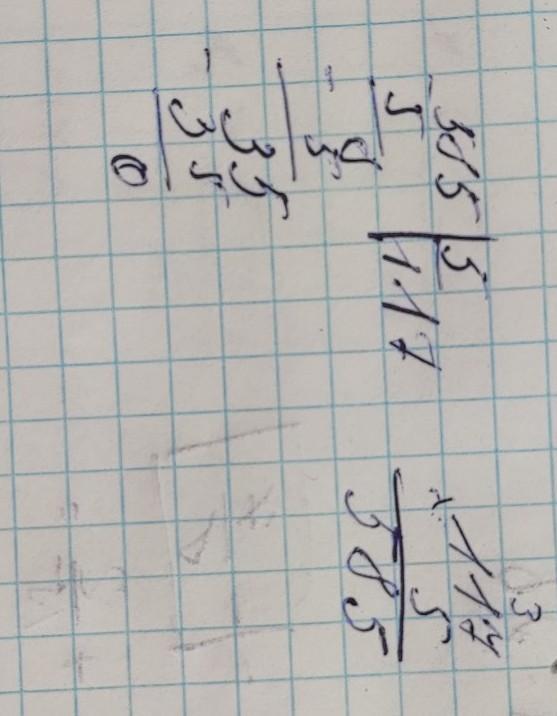 - 585 | 5
5 | 117
- 8
5
35
- 35
0
3
117
× 5
585